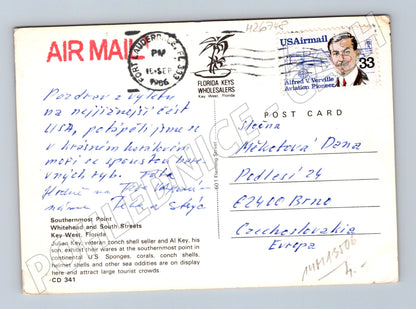 H26748
AIR MAIL
FORT LAUDERDALE, FL 333
PM
15 SEP
1986
FLORIDA KEYS
WHOLESALERS
Key West, Florida
USAirmail
Alfred V. Verville
Aviation Pioneer
33
Pozdrav z výletu
na nejjižnější část
USA, potápěli jsme se
v krásném korálovém
moři se spoustou barevných ryb. Táta
Hodně na Tebe
POST CARD
Slečna
Měkotová Dana
Podlesí 24
62400 Brno
Czechoslovakia
Evropa
601 Fleming Street
Southernmost Point
Whitehead and South Streets
Key West, Florida
Julian Key, veteran conch shell seller and Al Key, his
son, exhibit their wares at the southernmost point in
continental U.S. Sponges, corals, conch shells,
helmet shells and other sea oddities are on display
here and attract large tourist crowds.
CD 341